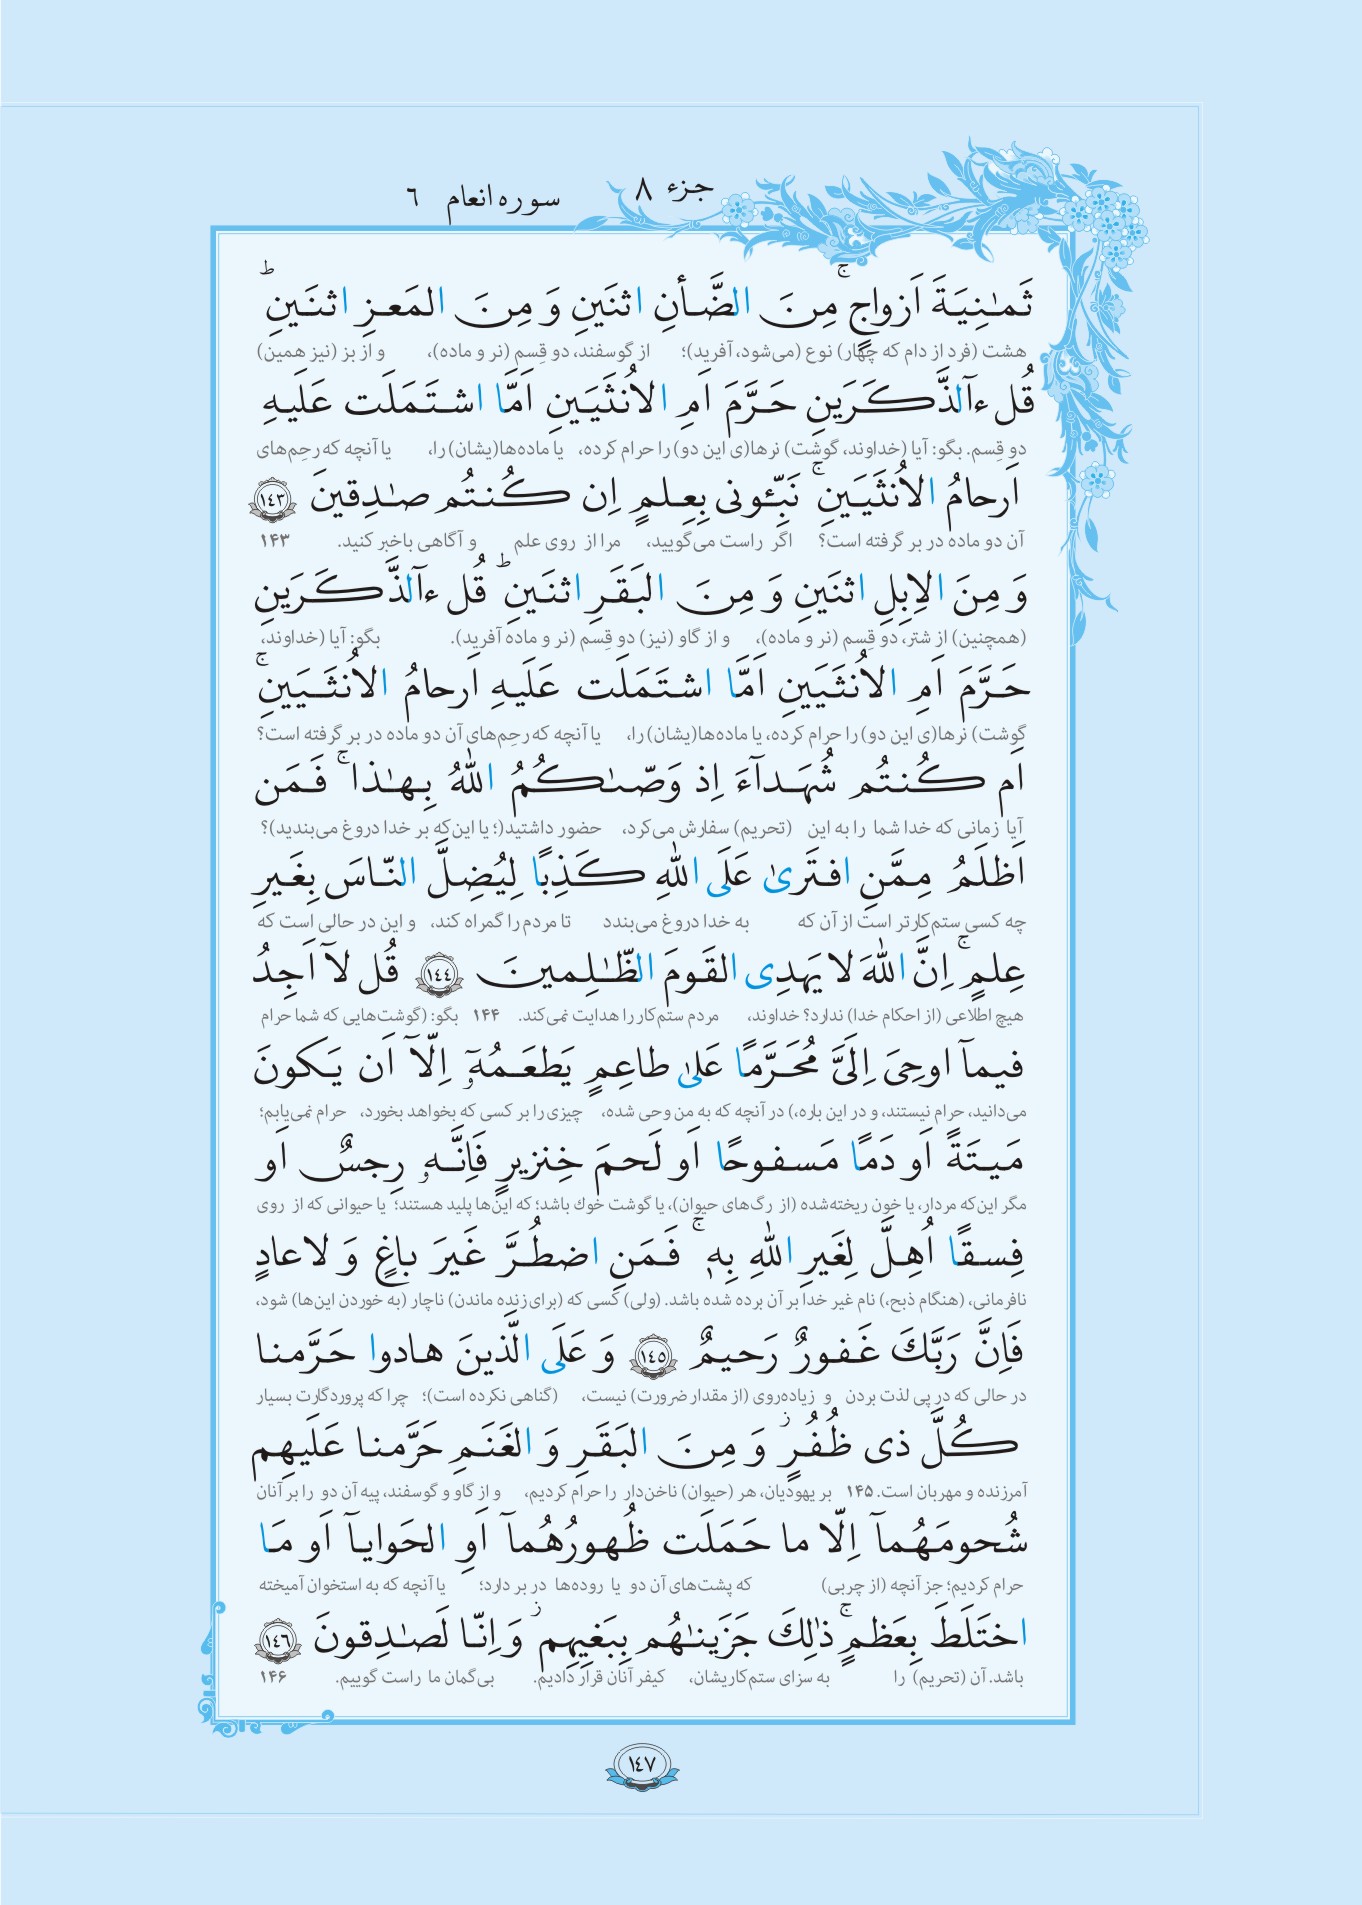 جزء ۸
سوره انعام ٦
ثَمـٰنِيَةَ اَزواجٍ ۚ مِنَ الضَّأنِ اثنَينِ وَ مِنَ المَعزِ اثنَينِ ۗ
هشت (فرد از دام که چهار) نوع (می‌شود، آفرید)؛ از گوسفند، دو قِسم (نر و ماده)، و از بز (نیز همین)
قُل ءآلذَّكَرَينِ حَرَّمَ اَمِ الاُنثَيَينِ اَمَّا اشتَمَلَت عَلَيهِ
دو قِسم. بگو: آیا (خداوند، گوشت) نرها(ی این دو) را حرام کرده، یا ماده‌ها(یشان) را، یا آنچه که رحِم‌های
اَرحامُ الاُنثَيَينِ ۚ نَبِّـُٔونى بِعِلمٍ اِن كُنتُم صـٰدِقينَ ﴿١٤٣﴾
آن دو ماده در بر گرفته است؟ اگر راست می‌گویید، مرا از روی علم و آگاهی باخبر کنید. ۱۴۳
وَ مِنَ الاِبِلِ اثنَينِ وَ مِنَ البَقَرِ اثنَينِ ۗ قُل ءآلذَّكَرَينِ
(همچنین) از شتر، دو قِسم (نر و ماده)، و از گاو (نیز) دو قِسم (نر و ماده آفرید). بگو: آیا (خداوند،
حَرَّمَ اَمِ الاُنثَيَينِ اَمَّا اشتَمَلَت عَلَيهِ اَرحامُ الاُنثَيَينِ ۚ
گوشت) نرها(ی این دو) را حرام کرده، یا ماده‌ها(یشان) را، یا آنچه که رحِم‌های آن دو ماده در بر گرفته است؟
اَم كُنتُم شُهَدآءَ اِذ وَصّىٰكُمُ اللّٰهُ بِهـٰذا ۚ فَمَن
آیا زمانی که خدا شما را به این (تحریم) سفارش می‌کرد، حضور داشتید(؛ یا این‌که بر خدا دروغ می‌بندید)؟
اَظلَمُ مِمَّنِ افتَرىٰ عَلَى اللّٰهِ كَذِبًا لِيُضِلَّ النّاسَ بِغَيرِ
چه کسی ستم‌کارتر است از آن که به خدا دروغ می‌بندد تا مردم را گمراه کند، و این در حالی است که
عِلمٍ ۚ اِنَّ اللّٰهَ لا يَهدِى القَومَ الظّـٰلِمينَ ﴿١٤٤﴾ قُل لآ اَجِدُ
هیچ اطلاعی (از احکام خدا) ندارد؟ خداوند، مردم ستم‌کار را هدایت نمی‌کند. ۱۴۴ بگو: (گوشت‌هایی که شما حرام
فيمآ اوحِىَ اِلَىَّ مُحَرَّمًا عَلىٰ طاعِمٍ يَطعَمُهُٓۥ اِلّآ اَن يَكونَ
می‌دانید، حرام نیستند، و در این باره،) در آنچه که به من وحی شده، چیزی را بر کسی که بخواهد بخورد، حرام نمی‌یابم؛
مَيتَةً اَو دَمًا مَسفوحًا اَو لَحمَ خِنزيرٍ فَاِنَّهُۥ رِجسٌ اَو
مگر این‌که مردار، یا خون ریخته‌شده (از رگ‌های حیوان)، یا گوشت خوك باشد؛ که این‌ها پلید هستند؛ یا حیوانی که از روی
فِسقًا اُهِلَّ لِغَيرِ اللّٰهِ بِهٖ ۚ فَمَنِ اضطُرَّ غَيرَ باغٍ وَ لا عادٍ
نافرمانی، (هنگام ذبح،) نام غیر خدا بر آن برده شده باشد. (ولی) کسی که (برای زنده ماندن) ناچار (به خوردن این‌ها) شود،
فَاِنَّ رَبَّكَ غَفورٌ رَحيمٌ ﴿١٤٥﴾ وَ عَلَى الَّذينَ هادوا حَرَّمنا
در حالی که در پی لذت بردن و زیاده‌روی (از مقدار ضرورت) نیست، (گناهی نکرده است)؛ چرا که پروردگارت بسیار
كُلَّ ذى ظُفُرٍ ۖ وَ مِنَ البَقَرِ وَ الغَنَمِ حَرَّمنا عَلَيهِم
آمرزنده و مهربان است. ۱۴۵ بر یهودیان، هر (حیوان) ناخن‌دار را حرام کردیم، و از گاو و گوسفند، پیه آن دو را بر آنان
شُحومَهُمآ اِلّا ما حَمَلَت ظُهورُهُمآ اَوِ الحَوايآ اَو مَا
حرام کردیم؛ جز آنچه (از چربی) که پشت‌های آن دو یا روده‌ها در بر دارد؛ یا آنچه که به استخوان آمیخته
اختَلَطَ بِعَظمٍ ۚ ذٰلِكَ جَزَينـٰهُم بِبَغيِهِم ۖ وَ اِنّا لَصـٰدِقونَ ﴿١٤٦﴾
باشد. آن (تحریم) را به سزای ستم‌کاریشان، کیفر آنان قرار دادیم. بی‌گمان ما راست گوییم. ۱۴۶
١٤٧